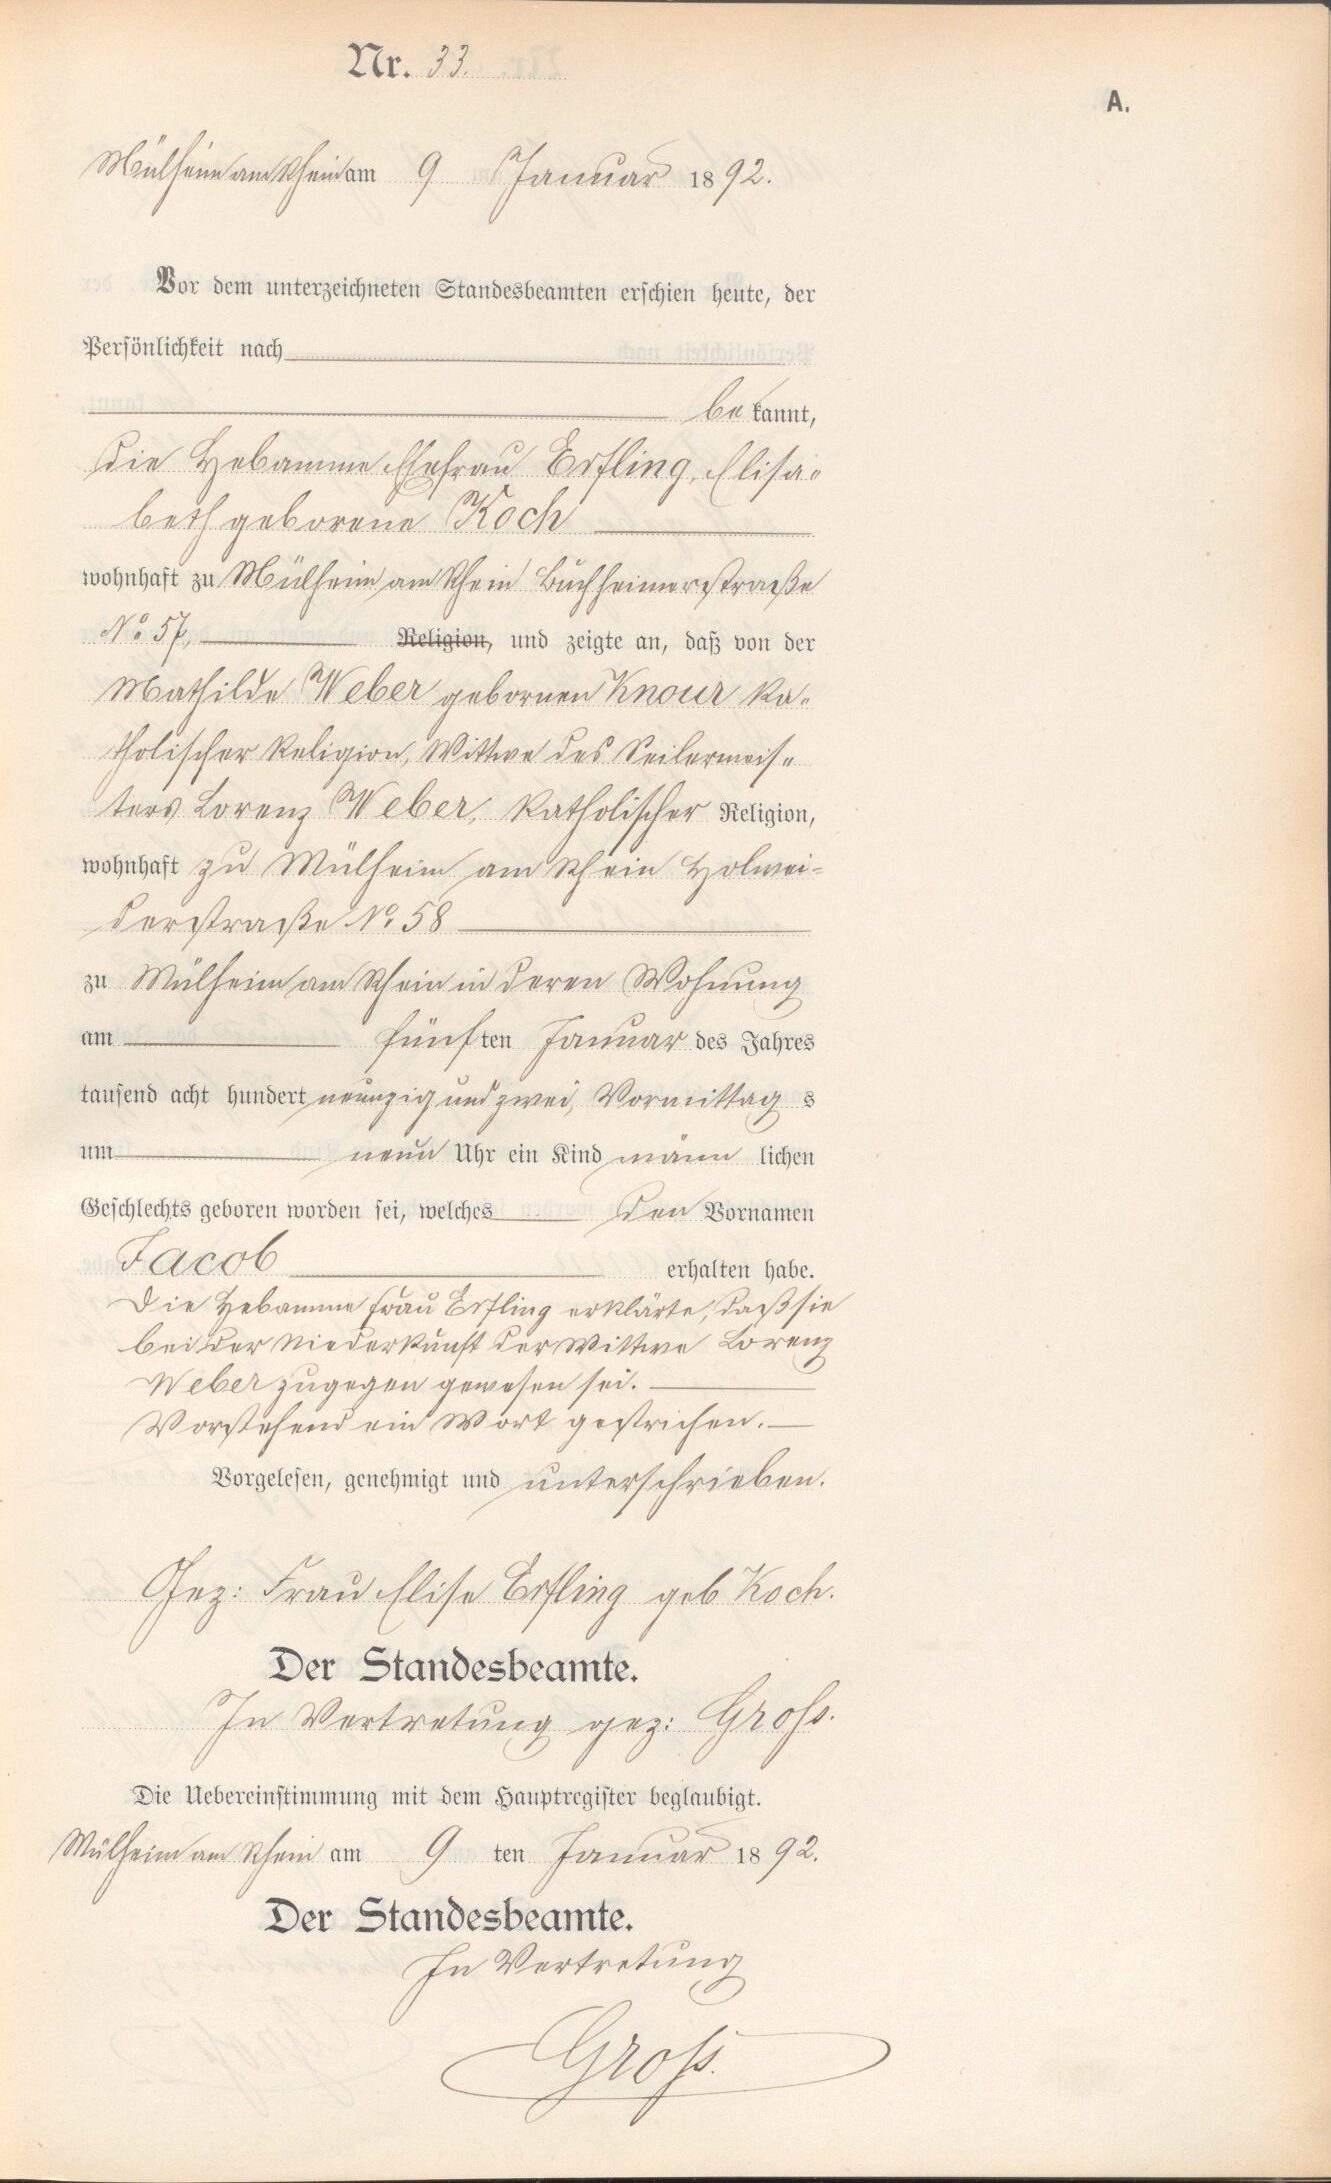 Nr. 33.
A.
Mülheim am Rhein am 9 Januar 1892.
Vor dem unterzeichneten Standesbeamten erschien heute, der
Persönlichkeit nach
bekannt,
die Hebamme Ehefrau Erfling, Elisa-
beth geborene Koch
wohnhaft zu Mülheim am Rhein Buchheimerstraße
No 57, Religion, und zeigte an, daß von der
Mathilde Weber gebornen Knour ka-
tholischer Religion, Wittwe des Seilermeis-
ters Lorenz Weber, katholischer Religion,
wohnhaft zu Mülheim am Rhein Holwei-
derstraße No 58
zu Mülheim am Rhein in deren Wohnung
am fünften Januar des Jahres
tausend acht hundert neunzig und zwei, Vormittags
um neun Uhr ein Kind männlichen
Geschlechts geboren worden sei, welches den Vornamen
Jacob erhalten habe.
Die Hebamme Frau Erfling erklärte, daß sie
bei der Niederkunft der Wittwe Lorenz
Weber zugegen gewesen sei.
Vorstehend ein Wort gestrichen.
Vorgelesen, genehmigt und unterschrieben.
Gez: Frau Elise Erfling geb Koch.
Der Standesbeamte.
In Vertretung gez: Groß.
Die Uebereinstimmung mit dem Hauptregister beglaubigt.
Mülheim am Rhein am 9ten Januar 1892.
Der Standesbeamte.
In Vertretung
Groß.